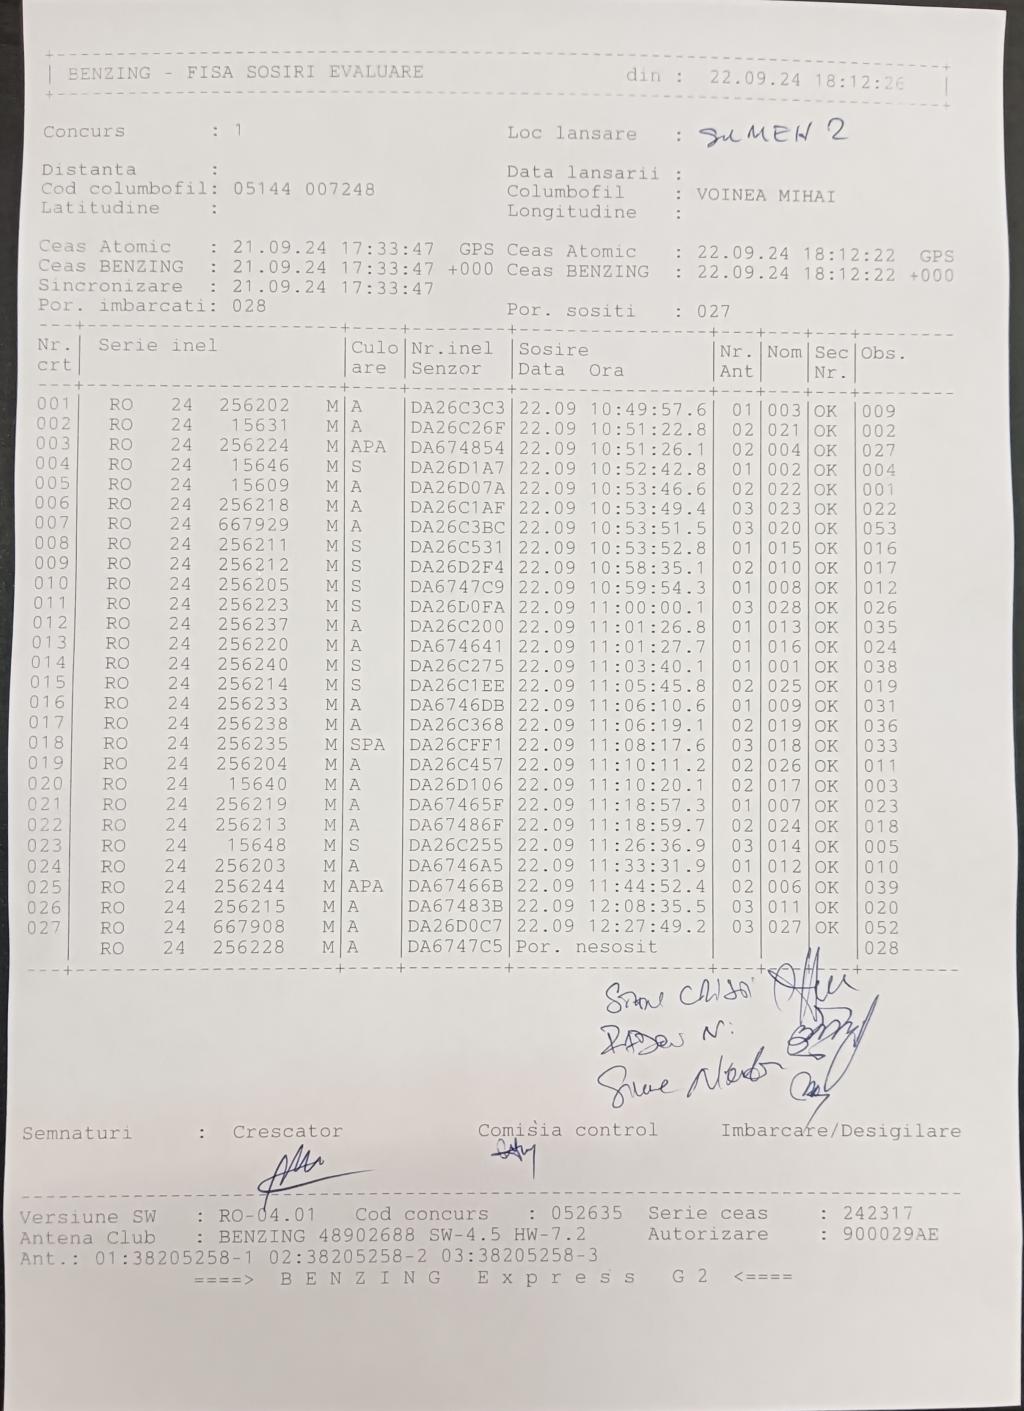 BENZING - FISA SOSIRI EVALUARE din : 22.09.24 18:12:26
Concurs : 1 Loc lansare : SUMEN 2
Distanta : Data lansarii :
Cod columbofil: 05144 007248 Columbofil : VOINEA MIHAI
Latitudine : Longitudine :
Ceas Atomic : 21.09.24 17:33:47 GPS Ceas Atomic : 22.09.24 18:12:22 GPS
Ceas BENZING : 21.09.24 17:33:47 +000 Ceas BENZING : 22.09.24 18:12:22 +000
Sincronizare : 21.09.24 17:33:47
Por. imbarcati: 028 Por. sositi : 027
Nr. Serie inel Culo Nr.inel Sosire Nr. Nom Sec Obs.
crt are Senzor Data Ora Ant Nr.
001 RO 24 256202 M A DA26C3C3 22.09 10:49:57.6 01 003 OK 009
002 RO 24 15631 M A DA26C26F 22.09 10:51:22.8 02 021 OK 002
003 RO 24 256224 M APA DA674854 22.09 10:51:26.1 02 004 OK 027
004 RO 24 15646 M S DA26D1A7 22.09 10:52:42.8 01 002 OK 004
005 RO 24 15609 M A DA26D07A 22.09 10:53:46.6 02 022 OK 001
006 RO 24 256218 M A DA26C1AF 22.09 10:53:49.4 03 023 OK 022
007 RO 24 667929 M A DA26C3BC 22.09 10:53:51.5 03 020 OK 053
008 RO 24 256211 M S DA26C531 22.09 10:53:52.8 01 015 OK 016
009 RO 24 256212 M S DA26D2F4 22.09 10:58:35.1 02 010 OK 017
010 RO 24 256205 M S DA6747C9 22.09 10:59:54.3 01 008 OK 012
011 RO 24 256223 M S DA26D0FA 22.09 11:00:00.1 03 028 OK 026
012 RO 24 256237 M A DA26C200 22.09 11:01:26.8 01 013 OK 035
013 RO 24 256220 M A DA674641 22.09 11:01:27.7 01 016 OK 024
014 RO 24 256240 M S DA26C275 22.09 11:03:40.1 01 001 OK 038
015 RO 24 256214 M S DA26C1EE 22.09 11:05:45.8 02 025 OK 019
016 RO 24 256233 M A DA6746DB 22.09 11:06:10.6 01 009 OK 031
017 RO 24 256238 M A DA26C368 22.09 11:06:19.1 02 019 OK 036
018 RO 24 256235 M SPA DA26CFF1 22.09 11:08:17.6 03 018 OK 033
019 RO 24 256204 M A DA26C457 22.09 11:10:11.2 02 026 OK 011
020 RO 24 15640 M A DA26D106 22.09 11:10:20.1 02 017 OK 003
021 RO 24 256219 M A DA67465F 22.09 11:18:57.3 01 007 OK 023
022 RO 24 256213 M A DA67486F 22.09 11:18:59.7 02 024 OK 018
023 RO 24 15648 M S DA26C255 22.09 11:26:36.9 03 014 OK 005
024 RO 24 256203 M A DA6746A5 22.09 11:33:31.9 01 012 OK 010
025 RO 24 256244 M APA DA67466B 22.09 11:44:52.4 02 006 OK 039
026 RO 24 256215 M A DA67483B 22.09 12:08:35.5 03 011 OK 020
027 RO 24 667908 M A DA26D0C7 22.09 12:27:49.2 03 027 OK 052
RO 24 256228 M A DA6747C5 Por. nesosit 028
Semnaturi : Crescator Comisia control Imbarcare/Desigilare
Versiune SW : RO-04.01 Cod concurs : 052635 Serie ceas : 242317
Antena Club : BENZING 48902688 SW-4.5 HW-7.2 Autorizare : 900029AE
Ant.: 01:38205258-1 02:38205258-2 03:38205258-3
====> B E N Z I N G E x p r e s s G 2 <====